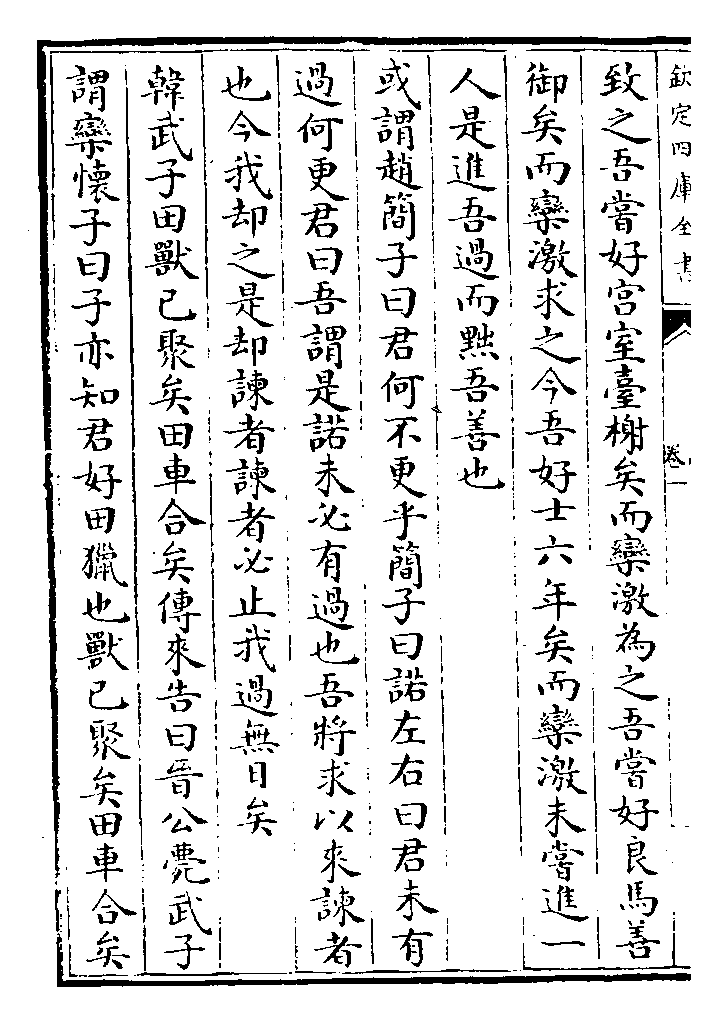 欽定四庫全書
卷一
致之吾嘗好宫室臺榭矣而欒激為之吾嘗好良馬善
御矣而欒激求之今吾好士六年矣而欒激未嘗進一
人是進吾過而黜吾善也
或謂趙簡子曰君何不更乎簡子曰諾左右曰君未有
過何更君曰吾謂是諾未必有過也吾將求以來諫者
也今我却之是却諫者諫者必止我過無日矣
韓武子田獸已聚矣田車合矣傳來告曰晉公薨武子
謂欒懷子曰子亦知君好田獵也獸已聚矣田車合矣